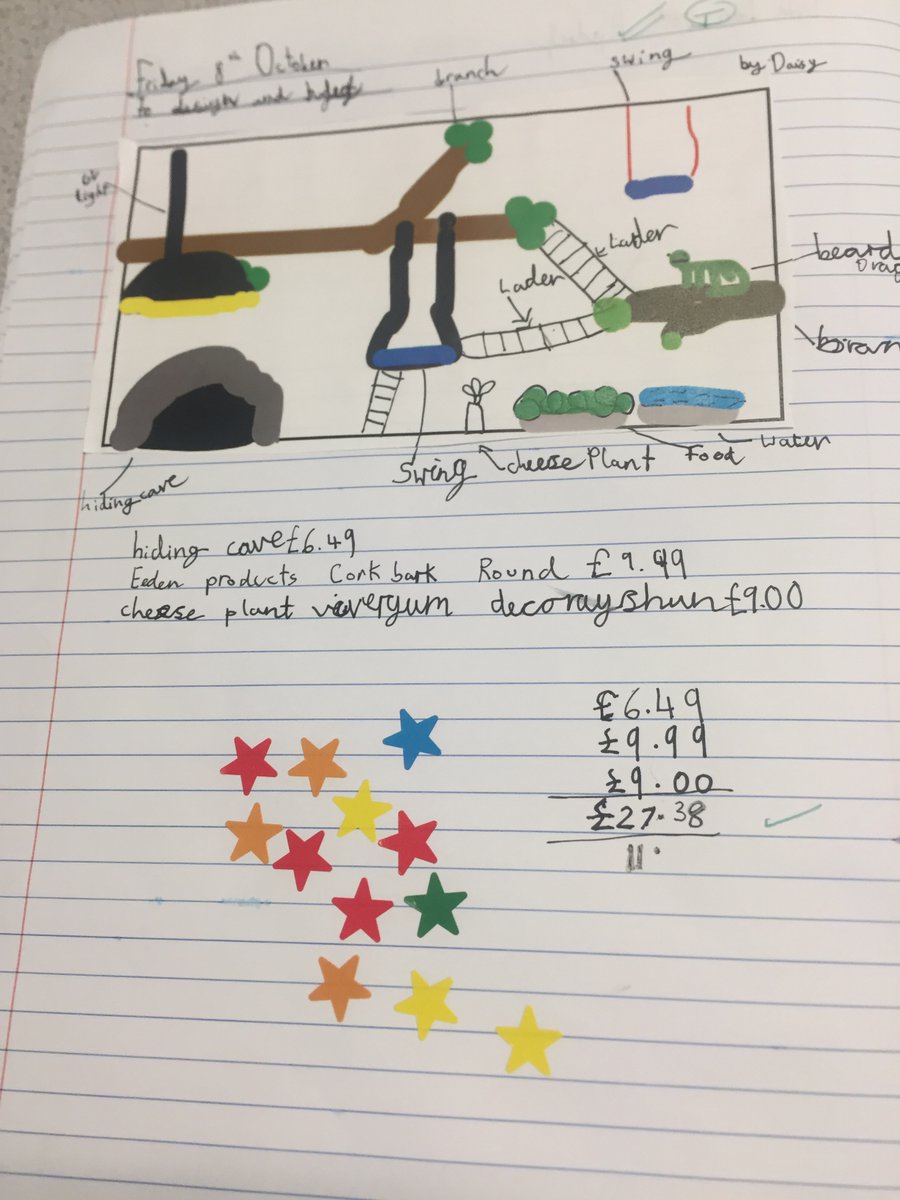 Friday 8th October
to design and budget
by Daisy
branch
swing
light
Lader
Lader
beard
Drag
bran
Swing
cheese Plant
Food
Water
hiding cave
hiding cave £6.49
Eeden products Cork bark Round £9.99
cheese plant viveryum decorayshun £9.00
£6.49
£9.99
£9.00
£27.38
11.